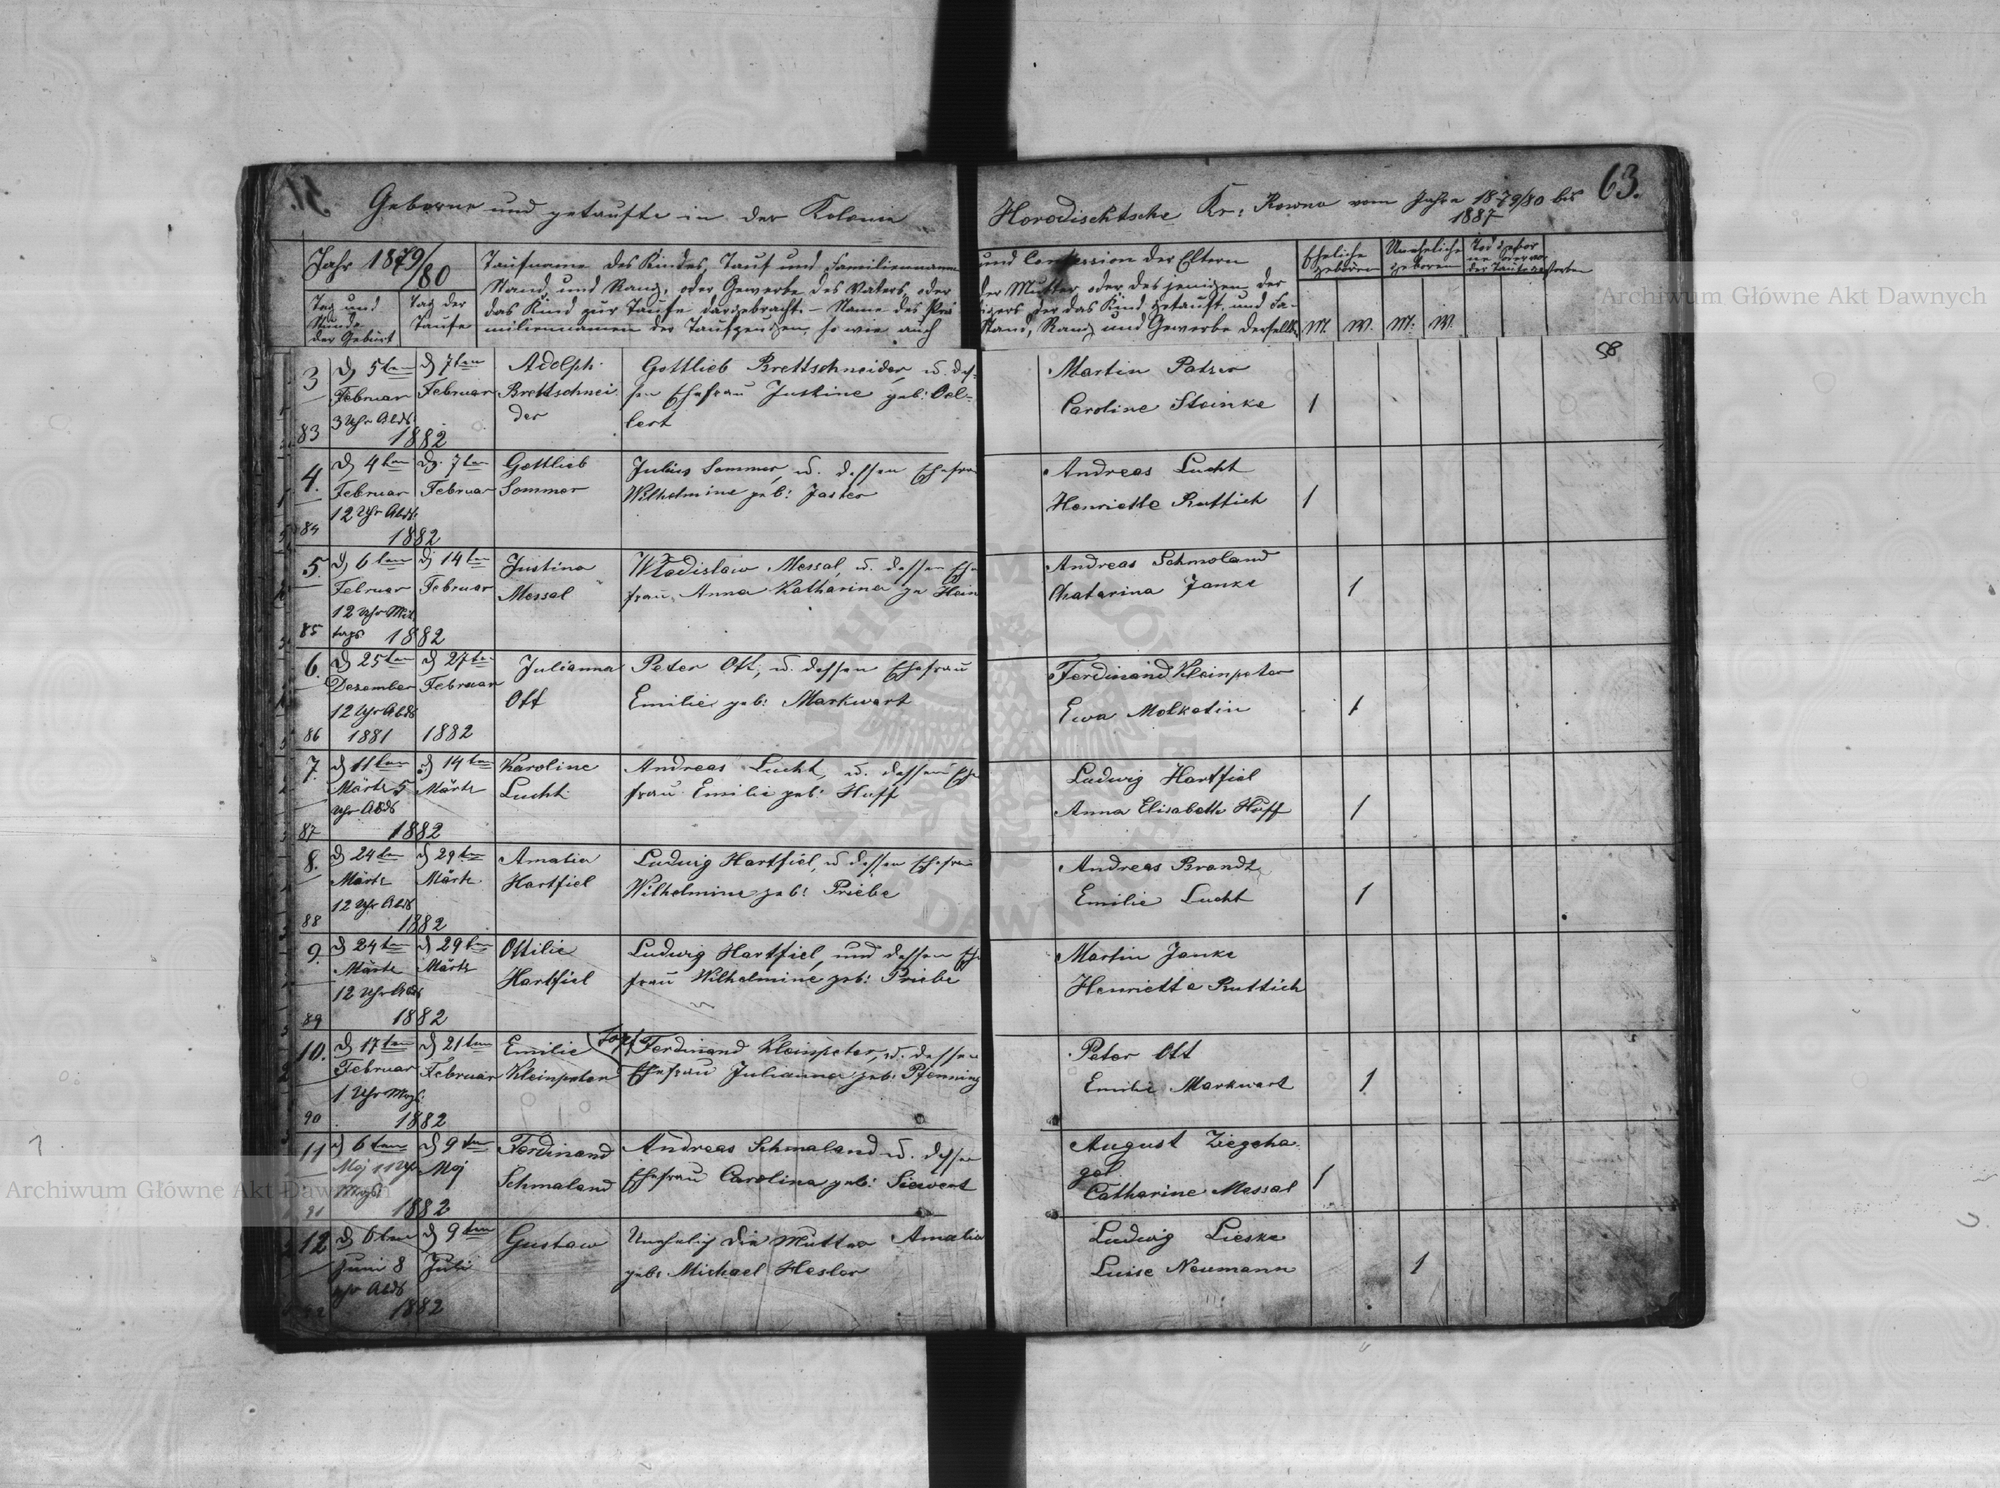 63.
Geborne und getaufte in der Kolonie
Horodischtsche Kr: Rowno vom Jahre 1879/80 bis
1887
Jahr 1879/80
Tag und
Stunde
der Geburt
Tag der
Taufe
Taufname des Kindes, Tauf und Familiennamen
Stand und Rang, oder Gewerbe des Vaters, oder
das Kind zur Taufe dargebracht – Name des Pre
miliennamen der Taufzeugen, so wie auch
und Confession der Eltern
der Mutter oder desjenigen der
digers der das Kind getauft, und Fa-
Stand, Rang und Gewerbe derselbe
Eheliche
geboren
Uneheliche
geboren
M. W. M. W.
58
3
83
d 5ten
Februar
3 Uhr Abds
d 7ten
Februar
1882
Adolph
Brettschnei
der
Gottlieb Brettschneider, u. des-
sen Ehefrau Justine geb: Oel-
lert
Martin Patzer
Caroline Steinke
1
4.
84
d 4ten
Februar
12 Uhr Abds
d. 7ten
Februar
1882
Gottlieb
Sommer
Julius Sommer, u. dessen Ehefrau
Wilhelmine geb: Jaster
Andreas Lucht
Henriette Ruttich
1
5.
85
d 6ten
Februar
12 Uhr Mit
tags
d 14ten
Februar
1882
Justina
Messal
Władislaw Messal, u. dessen Ehe
frau, Anna Katharina ge Hein
Andreas Schmoland
Chatarina Janke
1
6.
86
d 25ten
Dezember
12 Uhr Abds
1881
d 27ten
Februar
1882
Julianna
Ott
Peter Ott, u. dessen Ehefrau
Emilie geb: Markwart
Ferdinand Kleinpeter
Ewa Molkatin
1
7.
87
d 11ten
Märtz 5
Uhr Abds
d 14ten
Märtz
1882
Karoline
Lucht
Andreas Lucht, u. dessen Ehe
frau Emilie geb: Huff
Ludwig Hartfiel
Anna Elisabeth Huff
1
8.
88
d 24ten
Märtz
12 Uhr Abds
d 29ten
Märtz
1882
Amalia
Hartfiel
Ludwig Hartfiel, u dessen Ehefrau
Wilhelmine geb: Priebe
Andreas Brandt
Emilie Lucht
1
9.
89
d 24ten
Märtz
12 Uhr Abds
d 29ten
Märtz
1882
Ottilie
Hartfiel
Ludwig Hartfiel, und dessen Ehe
frau Wilhelmine geb: Priebe
Martin Janke
Henriette Ruttich
10.
90
d 17ten
Februar
1 Uhr Mrgs:
d 21ten
Februar
1882
Emilie
Kleinpeter
Ferdinand Kleinpeter, u. dessen
Ehefrau Julianna geb: Pfenning
Peter Ott
Emilie Markwart
1
11
91
d 6ten
Maj 11 Uhr
Mrgs
d 9ten
Maj
1882
Ferdinand
Schmaland
Andreas Schmaland u. dessen
Ehefrau Carolina geb: Siewert
August Ziegeha
gel
Catharine Messal
1
12
92
d 6ten
Juni 8
Uhr Abds
d 9ten
Juli
1882
Gustaw
Unehelich die Mutter Amalia
geb: Michael Hesler
Ludwig Lieske
Luise Neumann
1
Archiwum Główne Akt Dawnych
Archiwum Główne Akt Dawnych